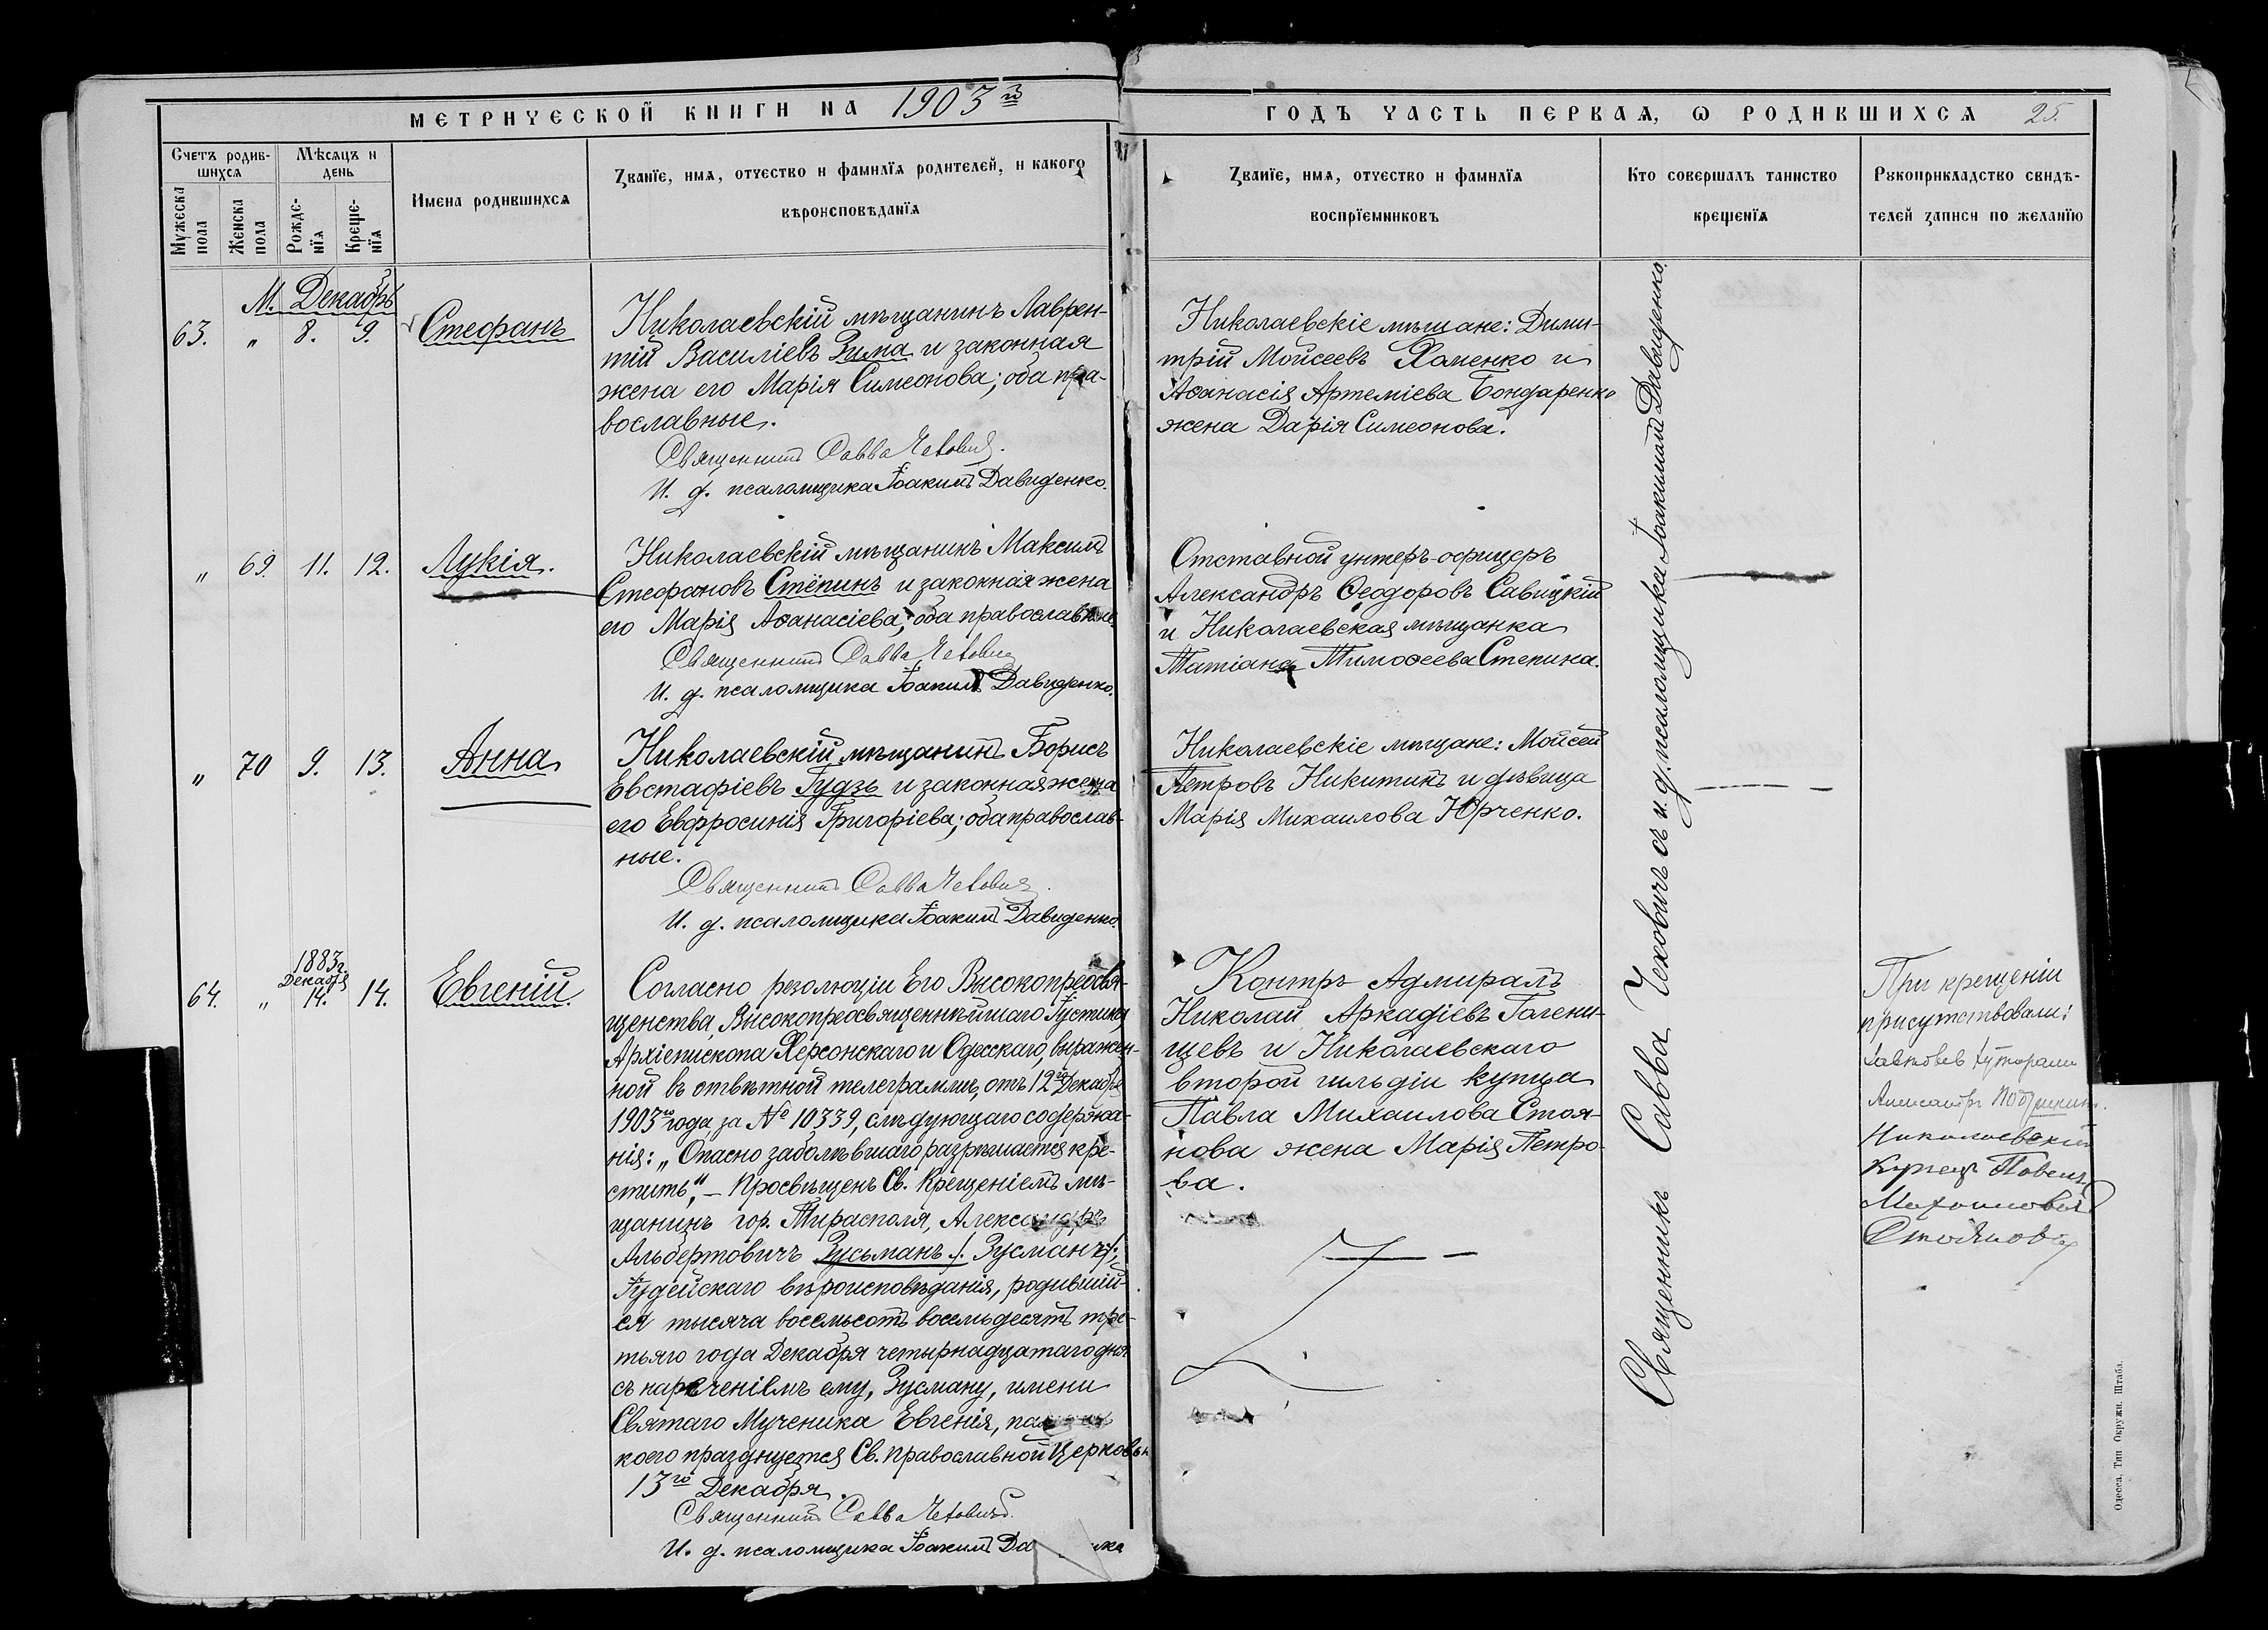 МЕТРИЧЕСКОЙ КНИГИ НА 1903 й
ГОДЪ ЧАСТЬ ПЕРВАЯ, Ѡ РОДИВШИХСЯ 25.
Счетъ родив-
шихся
Мѣсяцъ и
день
Мужеска пола
Женска пола
Рожде-
нїя
Креще-
нїя
Имена родившихся
Званїе, имя, отчество и фамилїя родителей, и какого
вѣроисповѣданїя
Званїе, имя, отчество и фамилїя
воспрїемниковъ
Кто совершалъ таинство
крещенїя
Рукоприкладство свидѣ-
телей записи по желанїю
М. Декабрь
63. „ 8. 9. Стефанъ
Николаевскій мѣщанинъ Лаврен-
тій Василіевъ Зима и законная
жена его Марія Симеонова; оба пра-
вославные.
Священникъ Савва Чеховичъ.
И. д. псаломщика Іоакимъ Давиденко.
Николаевскіе мѣщане: Дими-
трій Мойсеевъ Хоменко и
Аѳанасія Артеміева Бондаренко
жена Дарія Симеонова.
„ 69. 11. 12. Лукія.
Николаевскій мѣщанинъ Максимъ
Стефановъ Стёпинъ и законная жена
его Марія Аѳанасіева; оба православные.
Священникъ Савва Чеховичъ
И. д. псаломщика Іоакимъ Давиденко.
Отставной унтеръ-офицеръ
Александръ Ѳеодоровъ Савицкій
и Николаевская мѣщанка
Татіана Тимоѳеева Степина.
„ 70 9. 13. Анна
Николаевскій мѣщанинъ Борисъ
Евстафіевъ Гудзь и законная жена
его Евфросинія Григоріева; оба православ-
ные.
Священникъ Савва Чеховичъ.
И. д. псаломщика Іоакимъ Давиденко.
Николаевскіе мѣщане: Мойсей
Петровъ Никитинъ и дѣвица
Марія Михаилова Юрченко.
1883 г.
Декабря
64. „ 14. 14. Евгеній.
Согласно резолюціи Его Высокопреосвя-
щенства, Высокопреосвященнѣйшаго Іустина,
Архіепископа Херсонскаго и Одесскаго, выражен-
ной въ отвѣтной телеграммѣ, отъ 12го Декабря
1903го года за № 10339, слѣдующаго содержа-
нія: „Опасно заболѣвшаго разрѣшается кре-
стить“, – Просвѣщенъ Св. Крещеніемъ мѣ-
щанинъ гор. Тирасполя, Александръ
Альбертовичъ Зусьманъ /: Зусманъ:/,
Іудейскаго вѣроисповѣданія, родившій-
ся тысяча восемьсотъ восемьдесятъ тре-
тьяго года Декабря четырнадцатаго дня
съ нареченіемъ ему, Зусману, имени
Святаго Мученика Евгенія,
коего празднуется Св. Православной Церковью
13го Декабря.
Священникъ Савва Чеховичъ.
И. д. псаломщика Іоакимъ
Контръ-Адмиралъ
Николай Аркадіевъ Голени-
щевъ и Николаевскаго
второй гильдіи купца
Павла Михаилова Стоя-
нова жена Марія Петро-
ва.
Священникъ Савва Чеховичъ съ и. д. псаломщика Іоакимомъ Давиденко.
При крещеніи
присутствовали:
Александръ
Николаевскій
Купецъ Павелъ
Михаиловъ
Стояновъ
Одесса. Тип Окружн. Штаба.